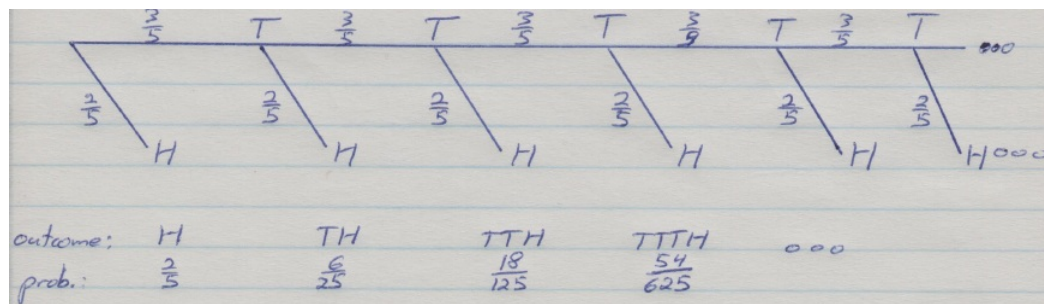 3/5 T 3/5 T 3/5 T 3/5 T 3/5 T ooo
2/5 2/5 2/5 2/5 2/5 2/5
H H H H H H ooo
outcome: H TH TTH TTTH ooo
prob.: 2/5 6/25 18/125 54/625